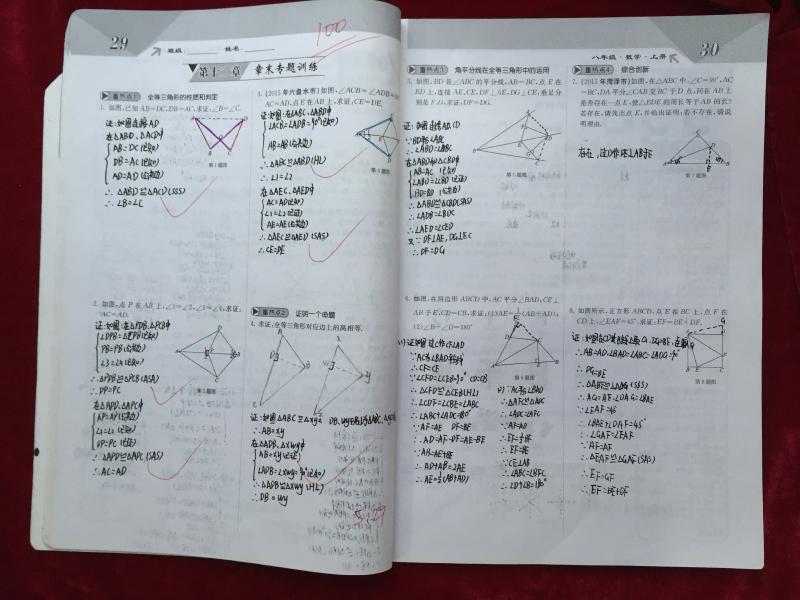 29
班级:
姓名:
100
第十二章 章末专题训练
重热点1 全等三角形的性质和判定
1. 如图,已知AB=DC,DB=AC,求证:∠B=∠C.
证:如图连接AD
在△ABD、△ACD中
AB=DC(已知)
DB=AC(已知)
AD=AD(公共边)
∴△ABD≌△ACD(SSS)
∴∠B=∠C
第1题图
2. 如图,点P在AB上,∠1=∠2,∠3=∠4,求证:
AC=AD.
证:如图:在△PDB、△PCB中
PB=PB(公共边)
∠3=∠4(已知)
∴△PDB≌△PCB(ASA)
∴DP=PC
在△APD、△APC中
AP=AP(公共边)
∠1=∠2(已知)
DP=PC(已证)
∴△APD≌△APC(SAS)
∴AC=AD
第2题图
3. [2015年六盘水市]如图,∠ACB=∠ADB=90°,
AC=AD,点E在AB上,求证:CE=DE.
证:如图:在△ABC、△ABD中
∠ACB=∠ADB=90°(已知)
AB=AB(公共边)
∴△ABC≌△ABD(HL)
∴∠1=∠2
在△AEC、△AED中
AC=AD(已知)
∠1=∠2(已证)
AE=AE(公共边)
∴△AEC≌△AED(SAS)
∴CE=DE
第3题图
重热点2 证明一个命题
4. 求证:全等三角形对应边上的高相等.
∴AB=xy
在△ADB、△xwy中
AB=xy(已证)
∴DB=wy
八年级·数学·上册
30
重热点3 角平分线在全等三角形中的运用
5. 如图,BD是∠ABC的平分线,AB=BC,点E在
BD上,连接AE,CE,DF⊥AE,DG⊥CE,垂足分
别是F、G.求证:DF=DG.
证:如图连接AD、CD
∵BD平分∠ABC
∴∠ABD=∠ABC
在△ABD和△CBD中
∠ABD=∠CBD(已证)
BD=BD(公共边)
∴△ABD≌△CBD(SAS)
∴∠ADB=∠BDC
∴∠AED=∠CED
又∵DF⊥AE,DG⊥EC
∴DF=DG
第5题图
6. 如图,在四边形ABCD中,AC平分∠BAD,CE⊥
AB于E,CD=CB,求证:(1)AE=½(AB+AD);
(2)∠B+∠D=180°
∴CF=CE
∵AF=AE DF=BE
∴AD=AF-DF=AE-BE
∵AB=AE+BE
∴AD+AB=2AE
∴AE=½(AB+AD)
∴∠D+∠B=180°
第6题图
重热点4 综合创新
7. [2015年菏泽市]如图,在△ABC中,∠C=90°,AC
=BC,DA平分∠CAB交BC于D点,问在AB上
是否存在一点E,使△BDE的周长等于AB的长?
若存在,请找出点E,并给出证明;若不存在,请说
明理由.
存在,过D作DE⊥AB于E
第7题图
8. 如图所示,正方形ABCD,点E在BC上,点F在
CD上,∠EAF=45°.求证:EF=BE+DF.
∴DG=BE
∴△ABE≌△ADG(SAS)
∴∠EAF=45°
∴∠BAE+∠DAF=45°
∴∠GAF=∠EAF
∵AF=AF
∴△EAF≌△GAF(SAS)
∴EF=GF
∴EF=BE+DF
第8题图